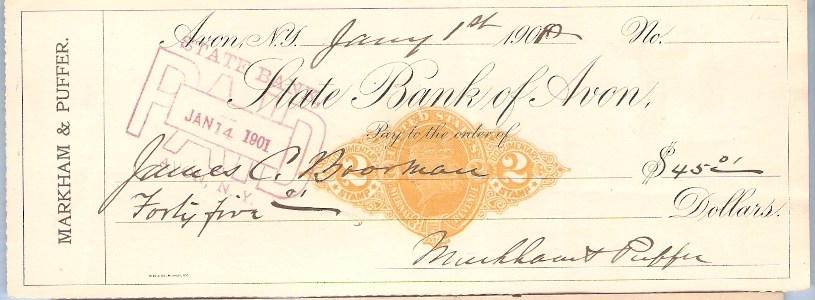 MARKHAM & PUFFER.
Avon, N.Y. Jany 1st 1901 No.
State Bank of Avon,
STATE BANK,
PAID
JAN 14 1901
AVON, N.Y.
Pay to the order of
UNITED STATES
DOCUMENTARY DOCUMENTARY
2 2
STAMP STAMP
INTERNAL REVENUE
James C. Boorman $45 01
Forty five 01 Dollars.
Markham & Puffer